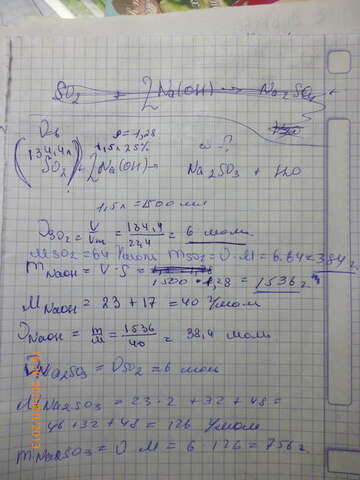 SO2 + 2Na(OH) → Na2SO4
V-в ρ = 1,28
134,4л 1,5л 25% ω - ?
SO2 + 2Na(OH) → Na2SO3 + H2O
1,5л = 1500 мл
νSO2 = V/Vm = 134,4/22,4 = 6 моль
MSO2 = 64 г/моль mSO2 = ν · M = 6·64 = 384 г
mNaOH = V · S = 1500 · 1,28 = 1536 г
MNaOH = 23 + 17 = 40 г/моль
νNaOH = m/M = 1536/40 = 38,4 моль
νNa2SO3 = νSO2 = 6 моль
MNa2SO3 = 23·2 + 32 + 48 =
46 + 32 + 48 = 126 г/моль
mNa2SO3 = ν · M = 6 · 126 = 756 г